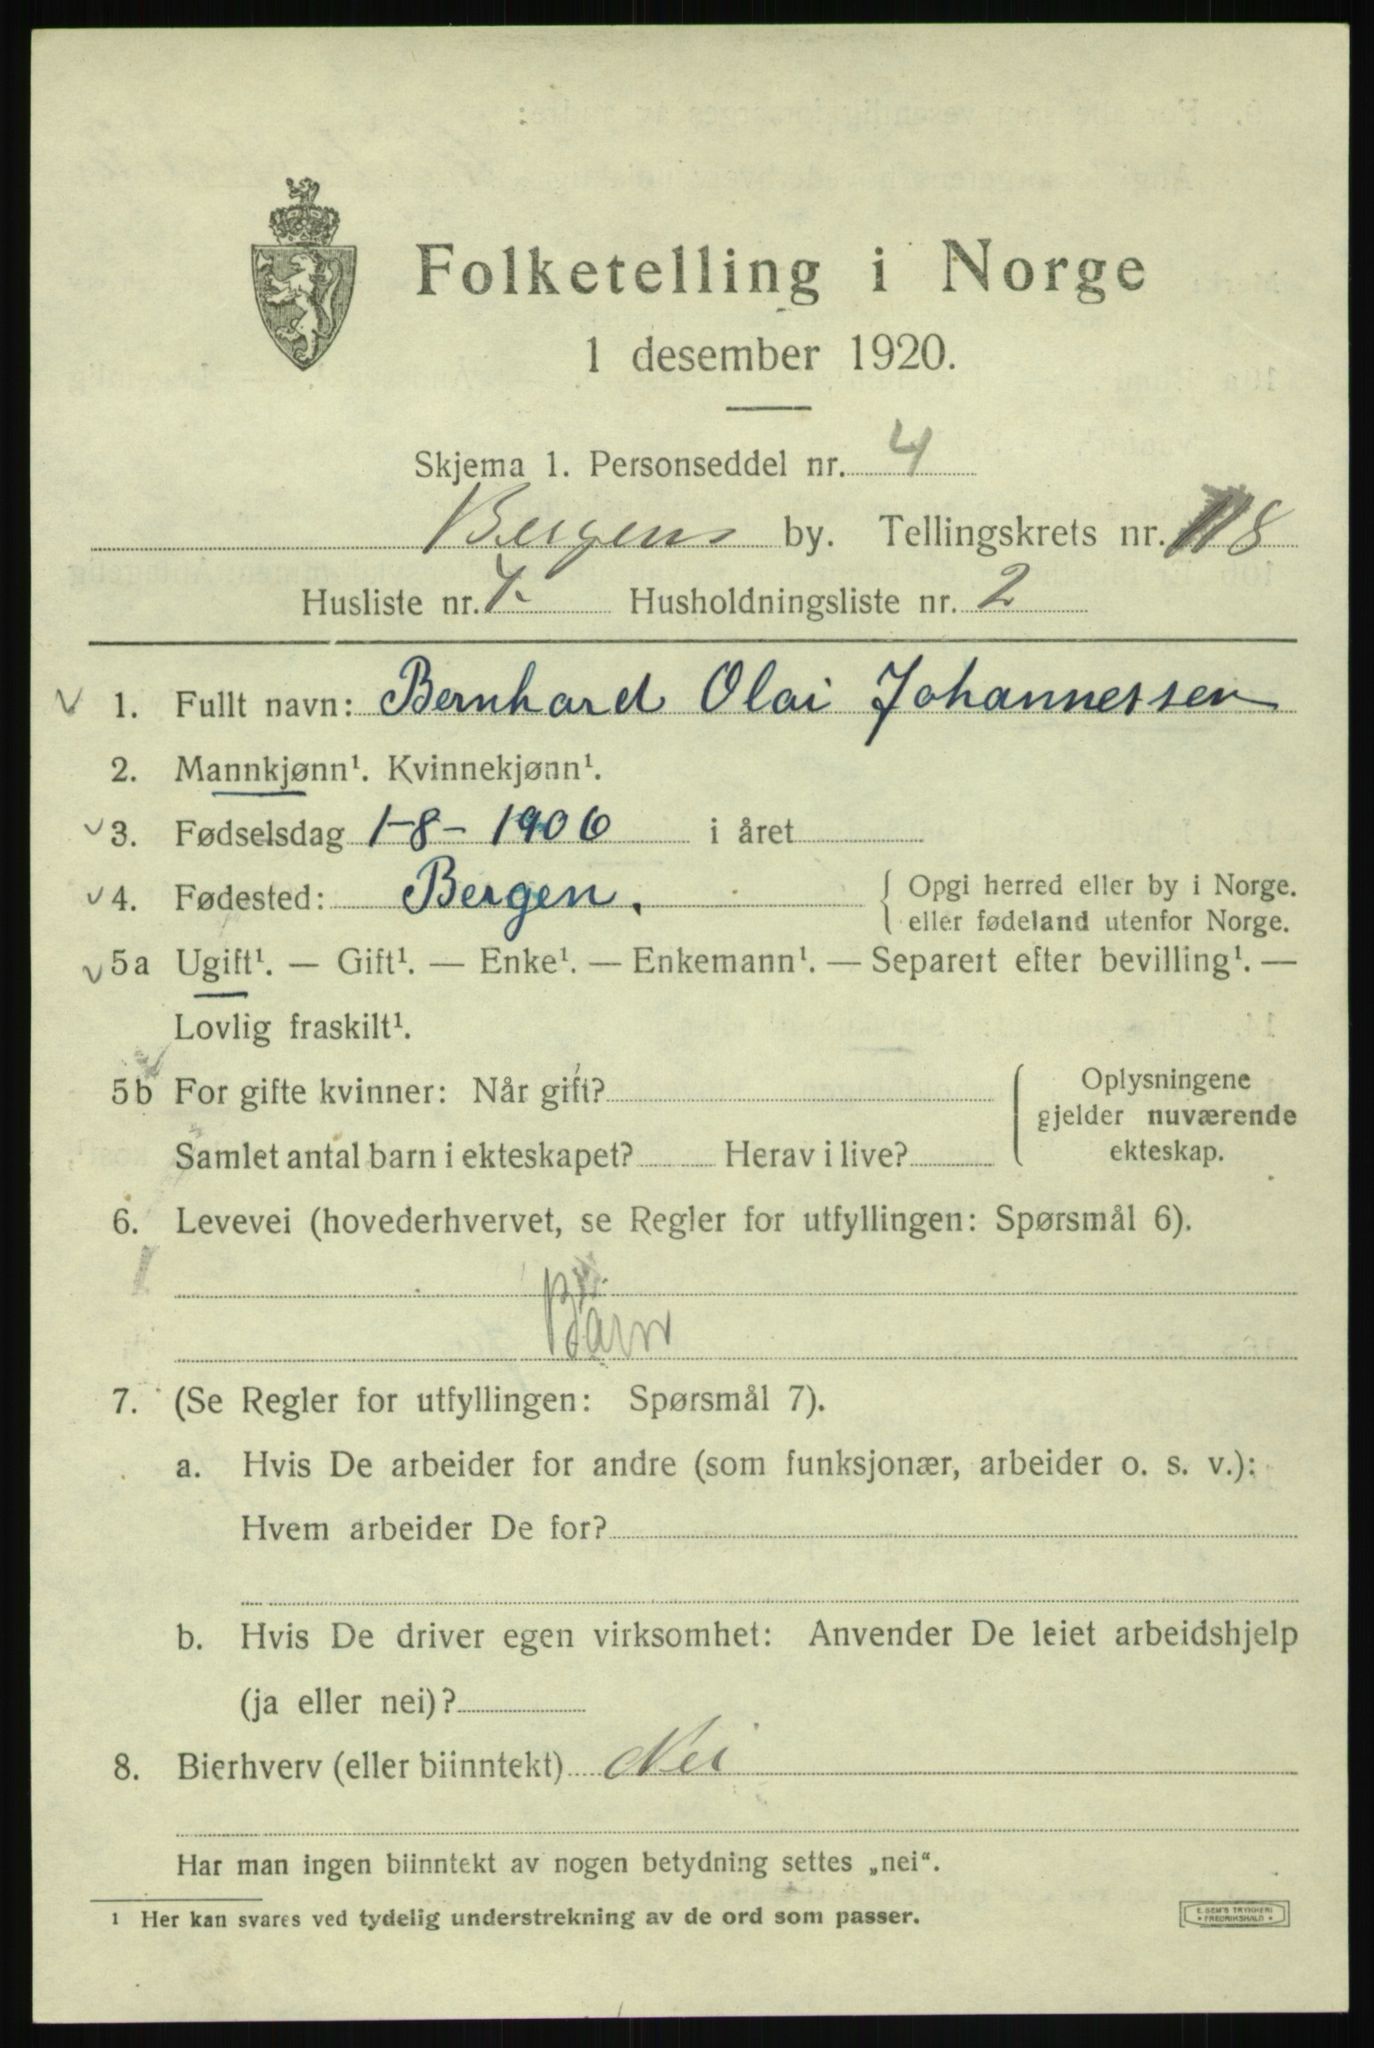 Folketelling i Norge
1 desember 1920.
Skjema 1. Personseddel nr. 4
Bergens by. Tellingskrets nr. 118
Husliste nr. 7. Husholdningsliste nr. 2
1. Fullt navn: Bernhard Olai Johannessen
2. Mannkjønn¹. Kvinnekjønn¹.
3. Fødselsdag 1-8-1906 i året
4. Fødested: Bergen. { Opgi herred eller by i Norge.
eller fødeland utenfor Norge.
5a Ugift¹. — Gift¹. — Enke¹. — Enkemann¹. — Separert efter bevilling¹. —
Lovlig fraskilt¹.
5b For gifte kvinner: Når gift? Oplysningene
gjelder nuværende
Samlet antal barn i ekteskapet? Herav i live? ekteskap.
6. Levevei (hovederhvervet, se Regler for utfyllingen: Spørsmål 6).
Barn
7. (Se Regler for utfyllingen: Spørsmål 7).
a. Hvis De arbeider for andre (som funksjonær, arbeider o. s. v.):
Hvem arbeider De for?
b. Hvis De driver egen virksomhet: Anvender De leiet arbeidshjelp
(ja eller nei)?
8. Bierhverv (eller biinntekt) Nei
Har man ingen biinntekt av nogen betydning settes „nei“.
¹ Her kan svares ved tydelig understrekning av de ord som passer.
E. SEM'S TRYKKERI
FREDRIKSHALD